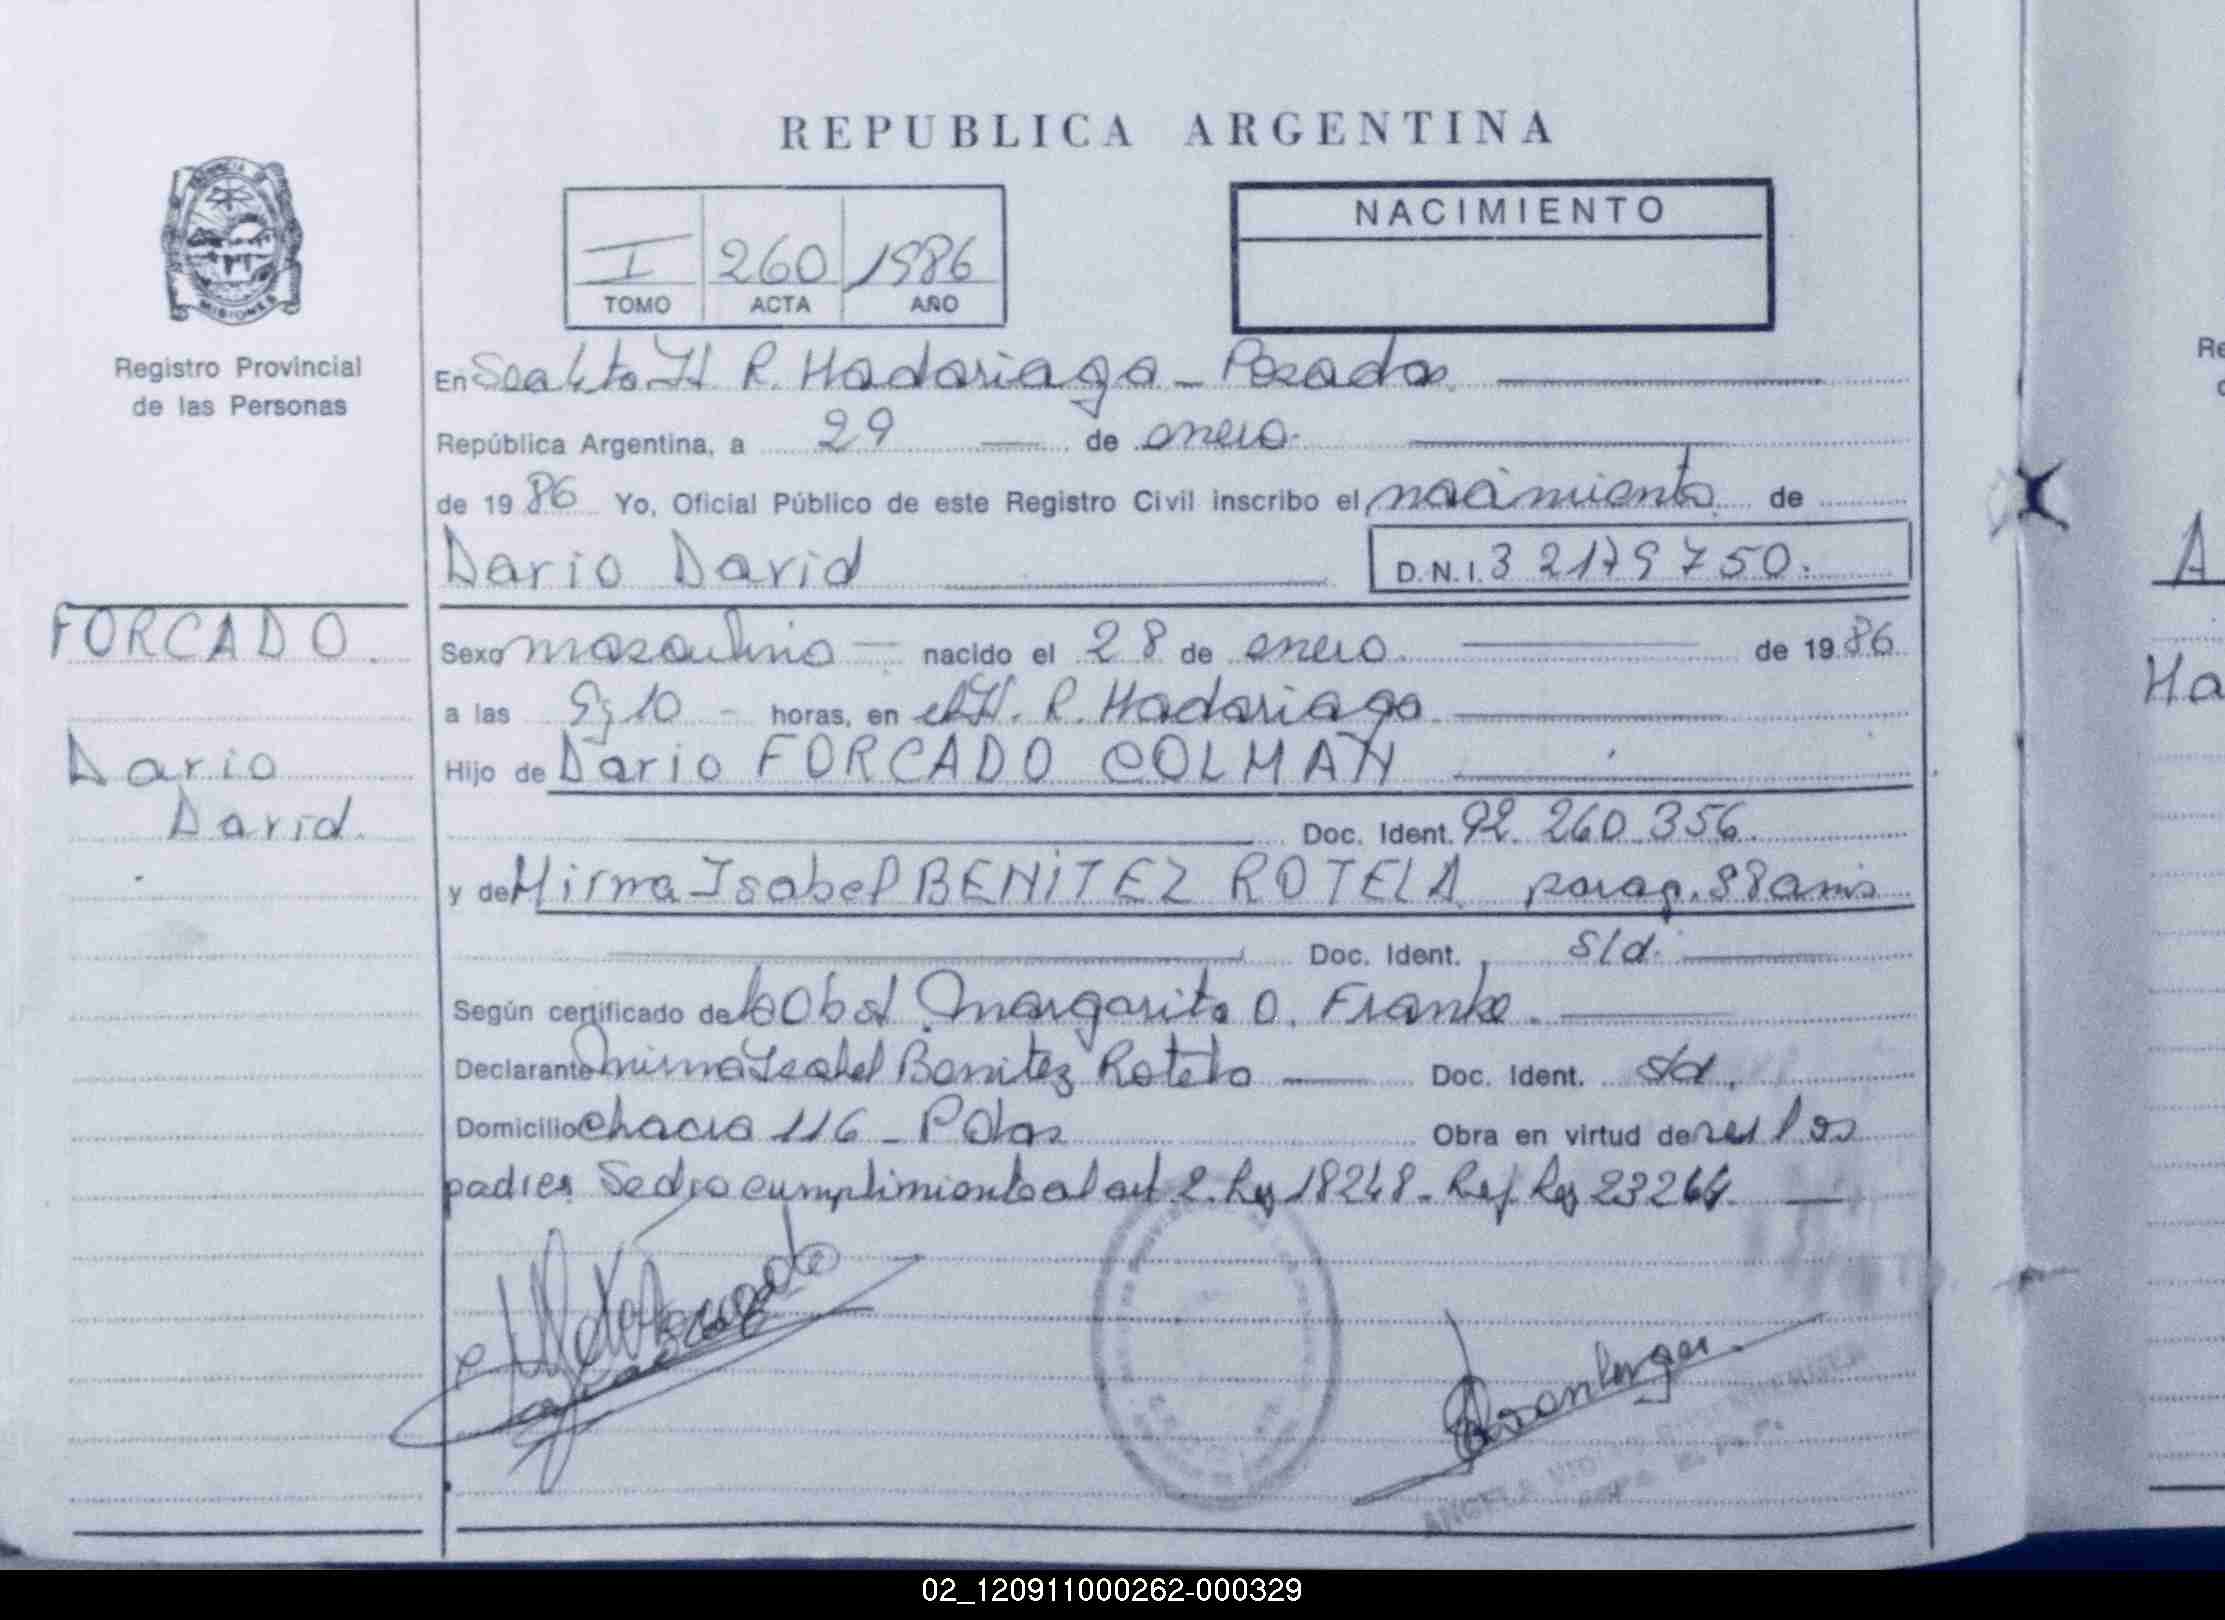 REPUBLICA ARGENTINA
I 260 1986
TOMO ACTA AÑO
NACIMIENTO
MISIONES
Registro Provincial
de las Personas
En H R. Madariaga - Posadas
República Argentina, a 29 de enero
de 19 86 Yo, Oficial Público de este Registro Civil inscribo el nacimiento de
Dario David D.N.I. 32179750.
FORCADO
Dario
David.
Sexo masculino nacido el 28 de enero de 19 86
a las 9,10 - horas, en el H. R. Madariaga
Hijo de Dario FORCADO COLMAN
Doc. Ident. 92.260.356
y de Mirna Isabel BENITEZ ROTELA parag.
Doc. Ident. s/d.
Según certificado de la Obst. Margarita O. Franke.
Declarante Mirna Isabel Benitez Rotela Doc. Ident. s/d.
Domicilio chacra 116 - Pdas Obra en virtud de ser los
padres Se dio cumplimiento al art 2. Ley 18248. Ref. Ley 23264.
ANGELA
Re
A
Ma
02_120911000262-000329